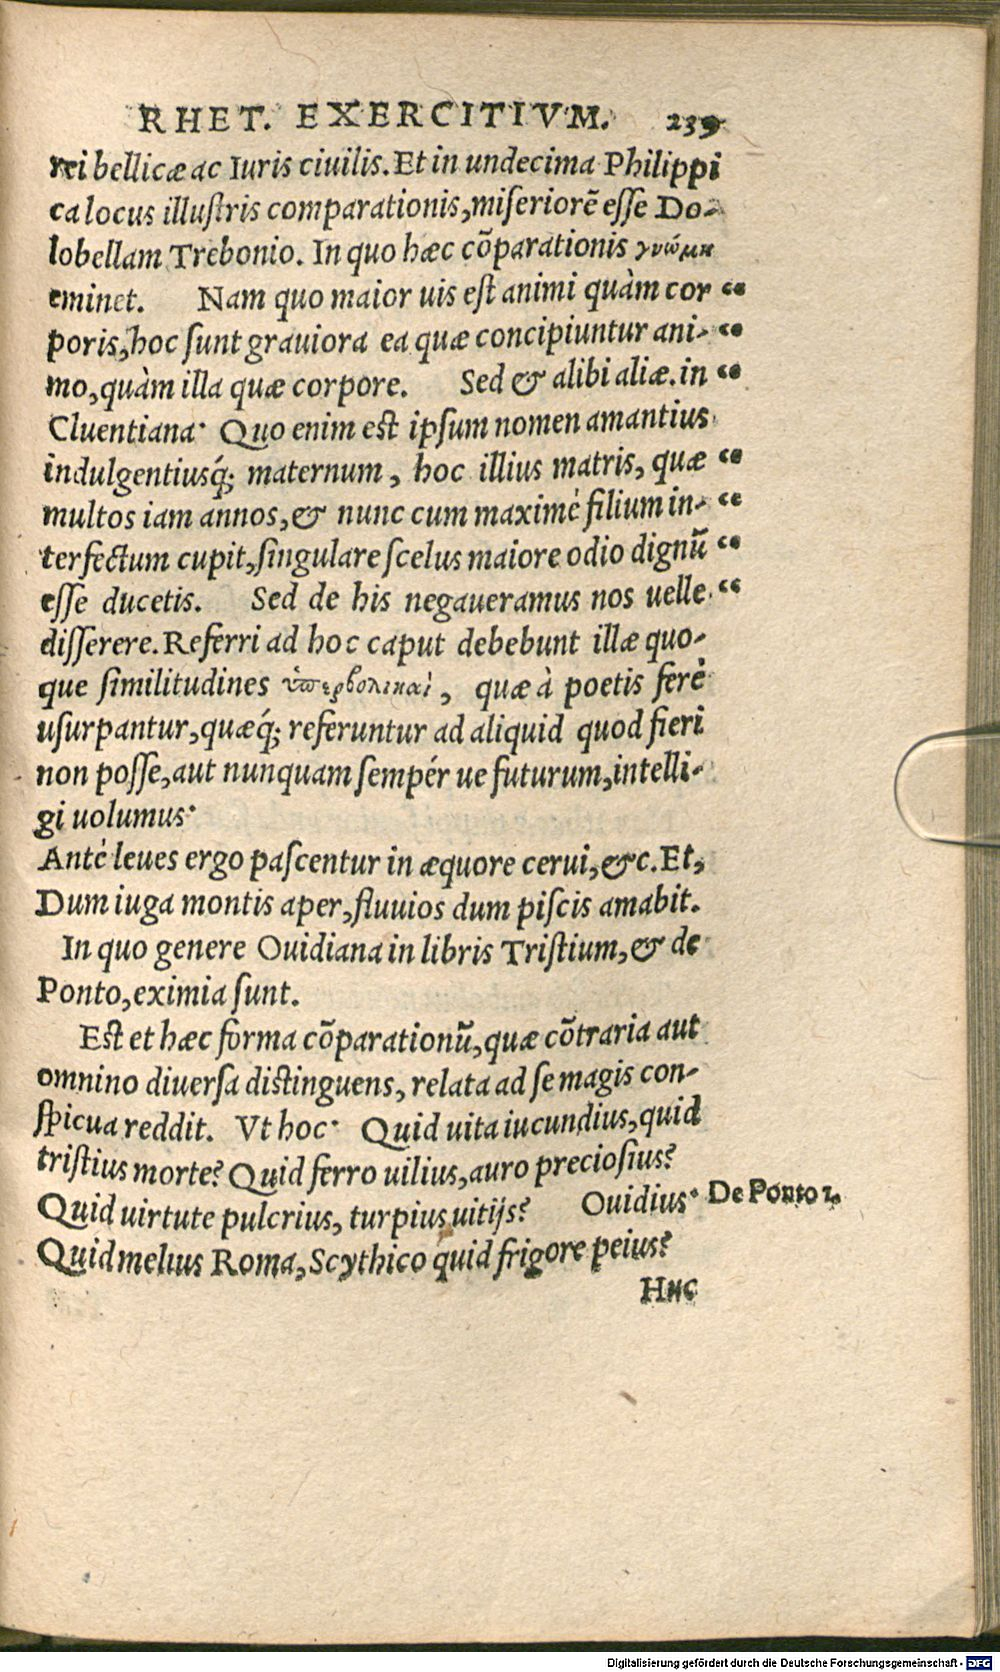 RHET. EXERCITIVM. 239
rei bellicæ ac Iuris ciuilis. Et in undecima Philippi
ca locus illustris comparationis, miseriorē esse Do-
lobellam Trebonio. In quo hæc cōparationis γνώμη
eminet. Nam quo maior uis est animi quàm cor “
poris, hoc sunt grauiora ea quæ concipiuntur ani- “
mo, quàm illa quæ corpore. Sed & alibi aliæ. in “
Cluentiana· Quo enim est ipsum nomen amantius
indulgentiusq́; maternum, hoc illius matris, quæ “
multos iam annos, & nunc cum maximè filium in- “
terfectum cupit, singulare scelus maiore odio dignū “
esse ducetis. Sed de his negaueramus nos uelle “
disserere. Referri ad hoc caput debebunt illæ quo-
que similitudines ὑπερβολικαὶ, quæ à poetis ferè
usurpantur, quæq́; referuntur ad aliquid quod fieri
non posse, aut nunquam sempér ue futurum, intelli-
gi uolumus·
Antè leues ergo pascentur in æquore cerui, &c. Et,
Dum iuga montis aper, fluuios dum piscis amabit.
In quo genere Ouidiana in libris Tristium, & de
Ponto, eximia sunt.
Est et hæc forma cōparationū, quæ cōtraria aut
omnino diuersa distinguens, relata ad se magis con-
spicua reddit. Vt hoc· Quid uita iucundius, quid
tristius morte? Quid ferro uilius, auro preciosius?
Quid uirtute pulcrius, turpius uitijs? Ouidius· De Ponto 1.
Quid melius Roma, Scythico quid frigore peius?
Huc
Digitalisierung gefördert durch die Deutsche Forschungsgemeinschaft - DFG